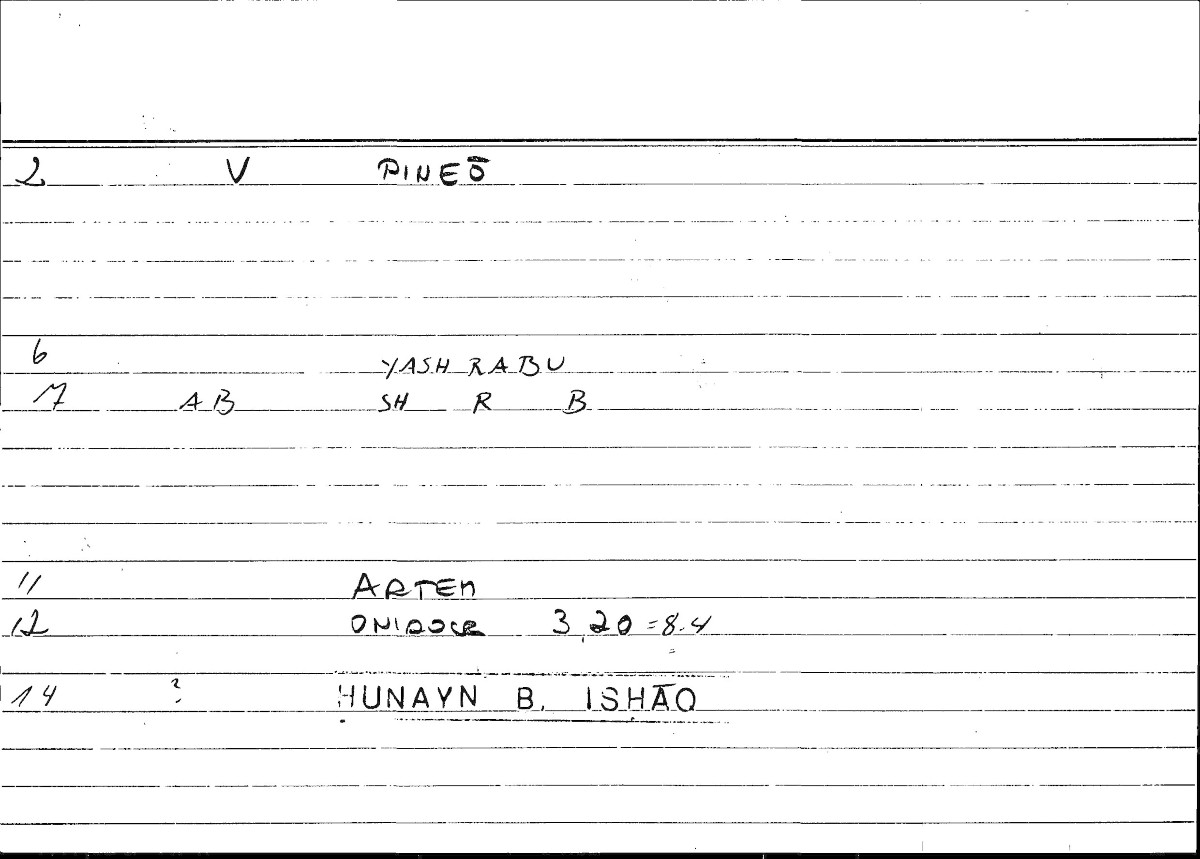 2 V PINEŌ
6 YASHRABU
7 AB SH R B
11 ARTEM
12 ONIROCR 3,20 =8.4
14 ? ḤUNAYN B. ISḤĀQ